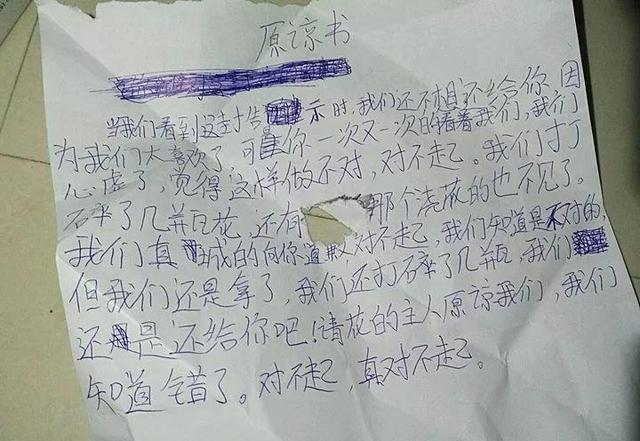 原谅书
当我们看到这封告示时，我们还不想还给你因
为我们太喜欢了，可你一次又一次的看着我们，我们
心虚了，觉得这样做不对，对不起。我们打
碎了几瓶花，还有那个浇液的也不见了。
我们真诚的向你道歉对不起，我们知道是不对的，
但我们还是拿了，我们还打碎了几瓶，我们
还是还给你吧！请花的主人原谅我们，我们
知道错了。对不起，真对不起。